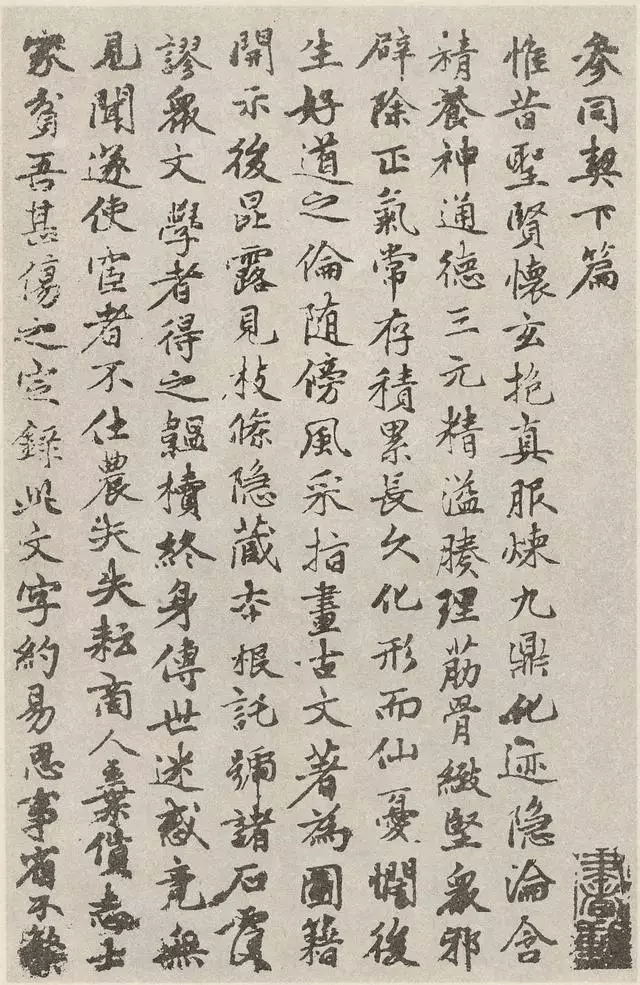 參同契下篇
惟昔聖賢懷玄抱真服煉九鼎化迹隐淪含
精養神通德三元精溢腠理筋骨緻堅眾邪
辟除正氣常存積累長久化形而仙憂憫後
生好道之倫随傍風采指畫古文著為圖籍
開示後昆露見枝條隐藏本根託號諸石覆
謬眾文學者得之韞櫝終身傳世迷惑竟無
見聞遂使宦者不仕農夫失耘商人棄貨志士
家貧吾甚傷之定錄此文字約易思事省不繁